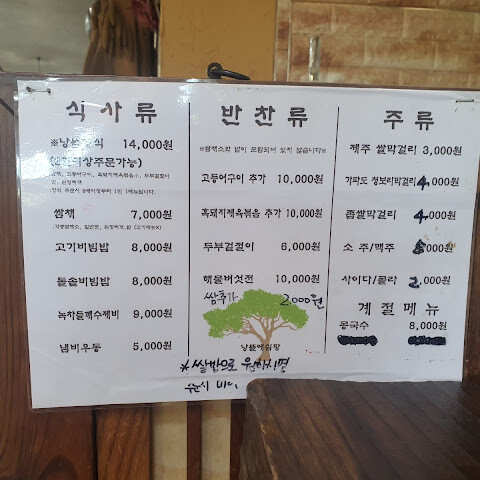 식사류
※낭쓴정식 14,000원
(2인이상주문가능)
쌈채, 고등어구이, 흑돼지제육볶음小, 두부겉절이
밥, 된장찌개
쌈채 7,000원
고기비빔밥 8,000원
돌솥비빔밥 8,000원
녹차들깨수제비 9,000원
냄비우동 5,000원
반찬류
※쌈채소와 밥이 포함되어 있지 않습니다※
고등어구이 추가 10,000원
흑돼지제육볶음 추가 10,000원
두부겉절이 6,000원
해물버섯전 10,000원
쌈추가 2,000원
주류
제주 쌀막걸리 3,000원
가파도 청보리막걸리 4,000원
좁쌀막걸리 4,000원
소주/맥주 000원
사이다/콜라 2,000원
계절메뉴
콩국수 8,000원
*쌀밥으로 원하시면